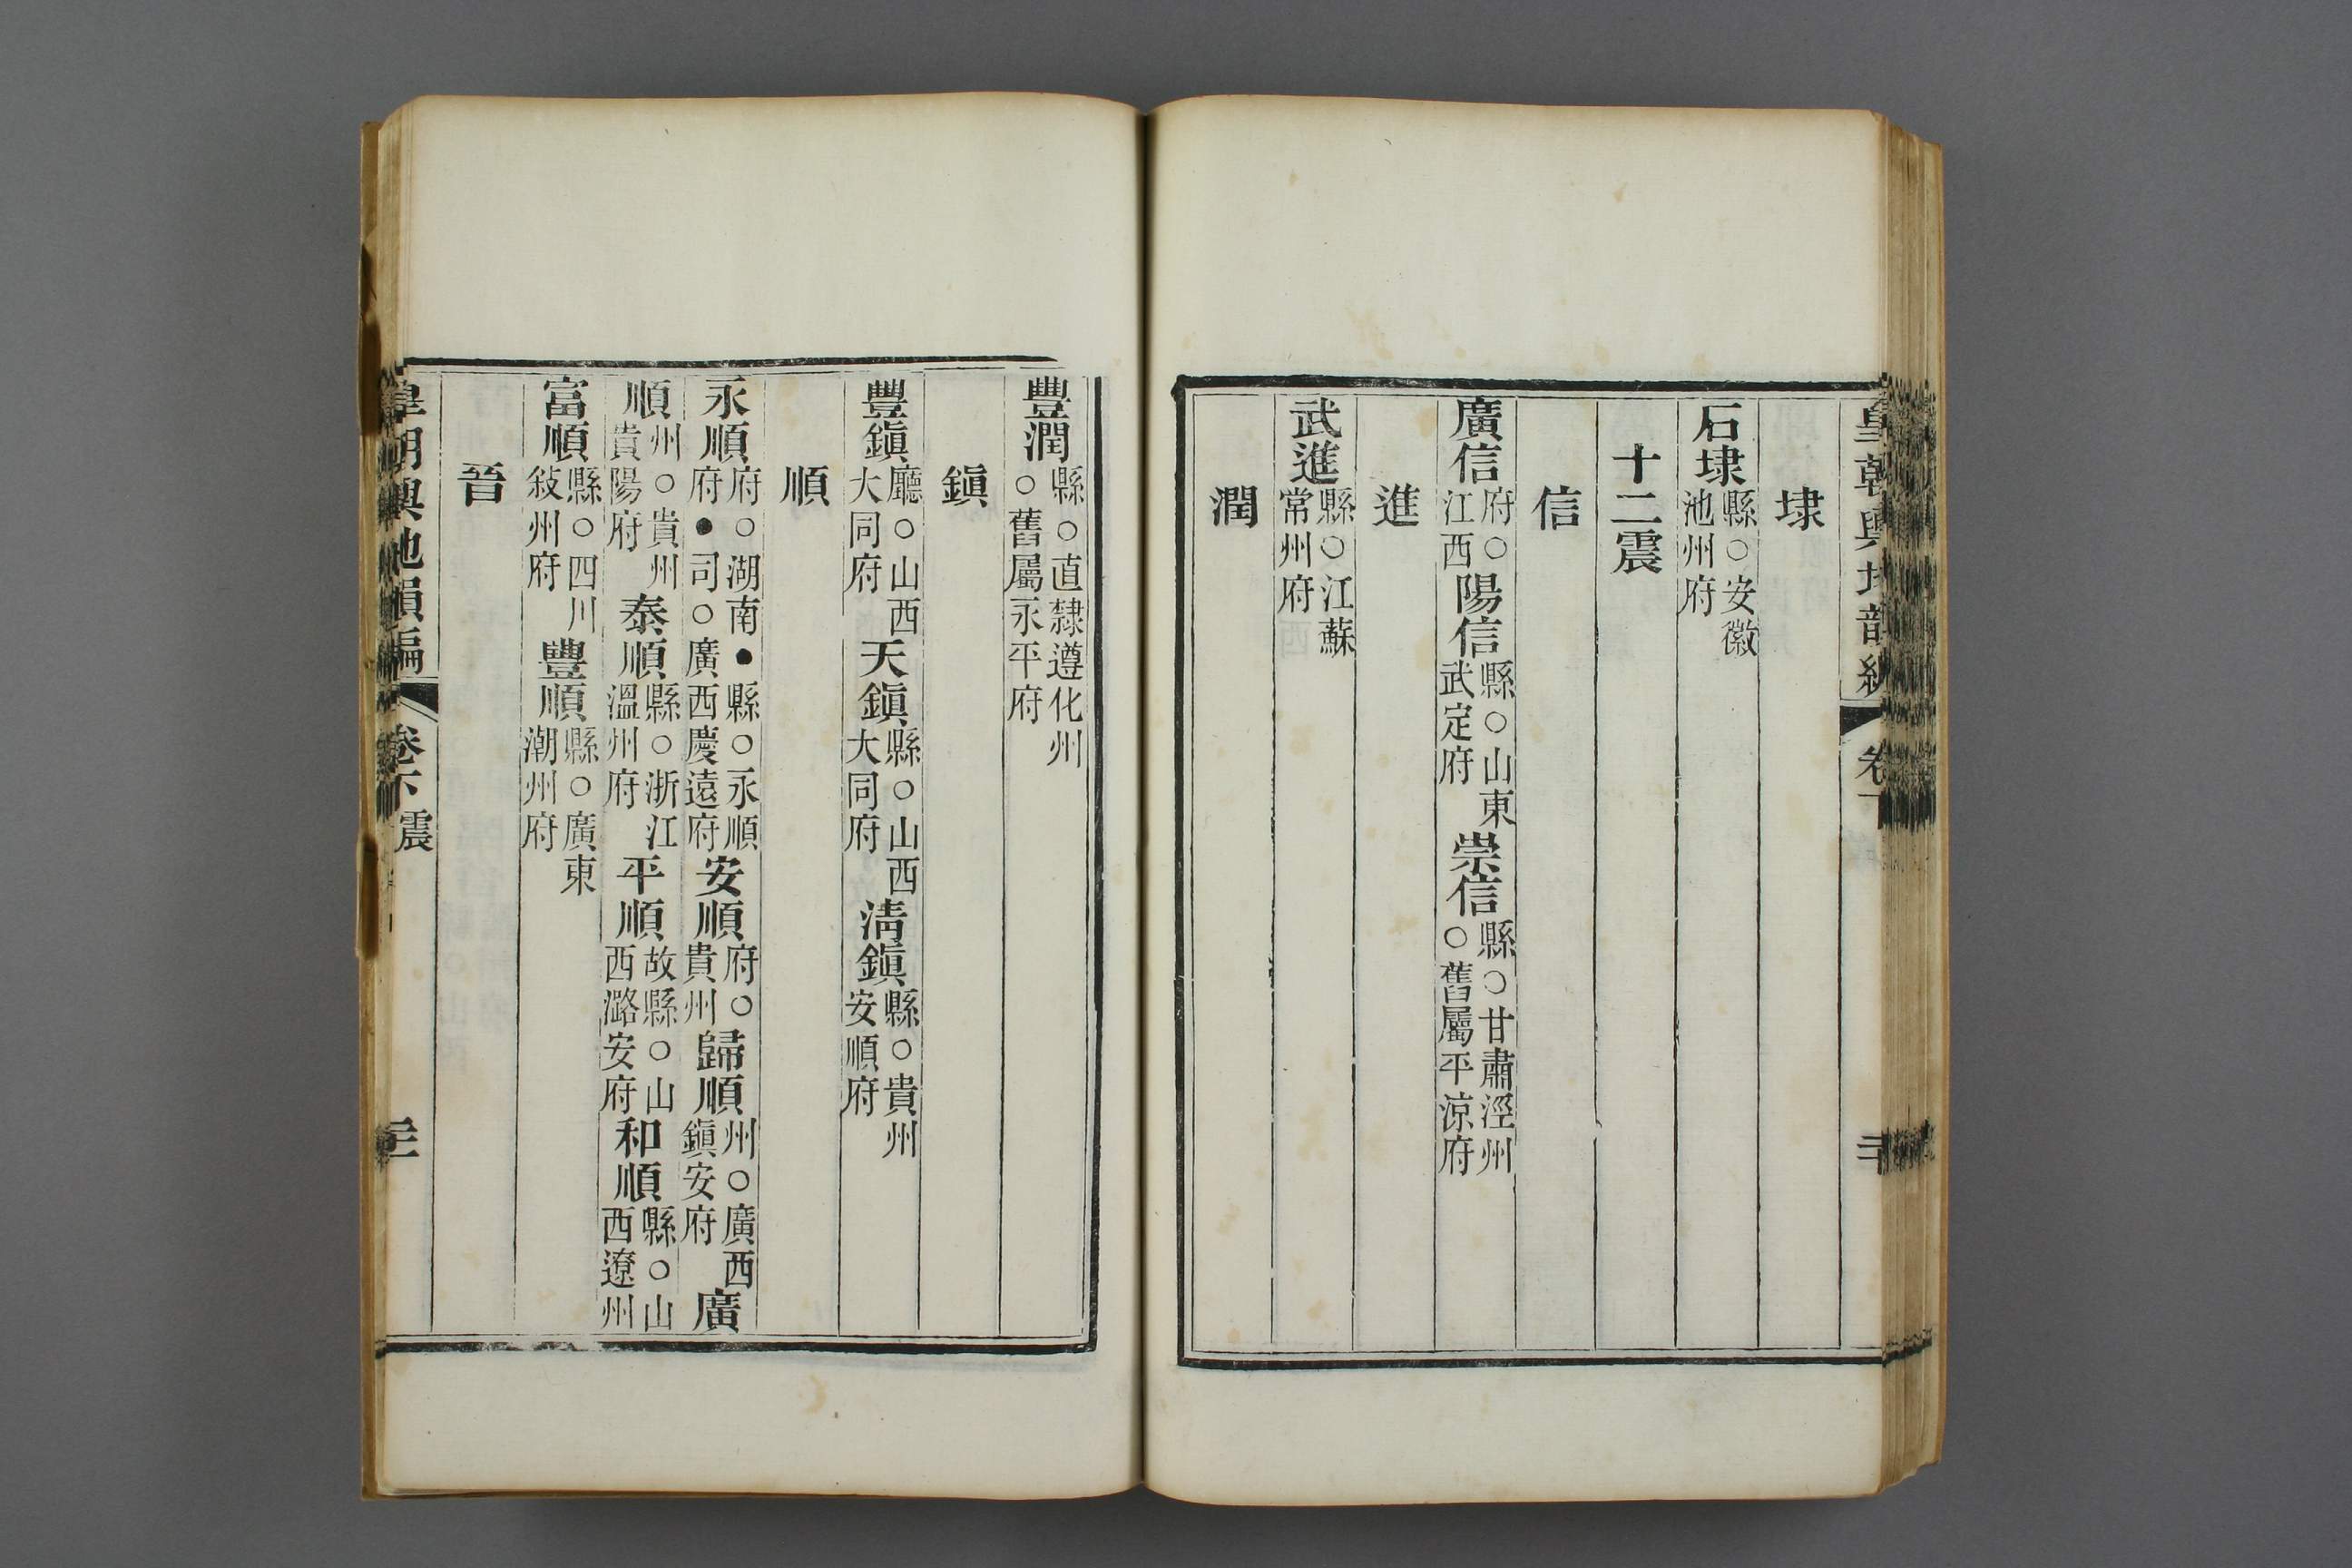 埭
石埭縣○安徽池州府
十二震
信
廣信府○江西陽信縣○山東武定府崇信縣○甘肅涇州○舊屬平涼府
進
武進縣○江蘇常州府
潤
豐潤縣○直隸遵化州○舊屬永平府
鎭
豐鎭廳○山西大同府天鎭縣○山西大同府清鎭縣○貴州安順府
順
永順府○湖南●縣○永順府●司○廣西慶遠府安順府○貴州歸順州○廣西鎭安府廣
順州○貴州貴陽府泰順縣○浙江溫州府平順故縣○山西潞安府和順縣○山西遼州
富順縣○四川敘州府豐順縣○廣東潮州府
晉
皇朝輿地韻編 卷下 震